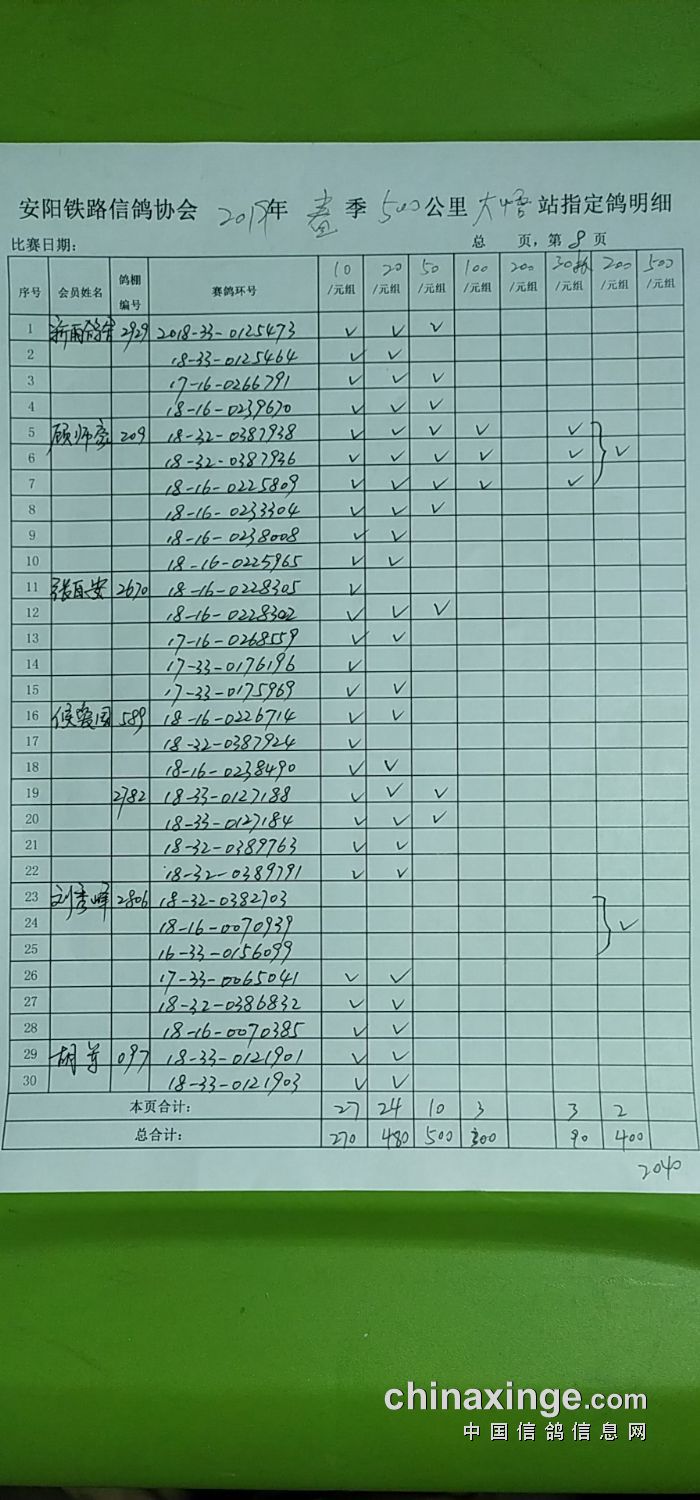 安阳铁路信鸽协会 2019年 春 季 500公里 大悟 站指定鸽明细
比赛日期： 总 页，第 8 页
序号 会员姓名 鸽棚编号 赛鸽环号 10/元组 20/元组 50/元组 100/元组 200/元组 30/元组 200/元组 500/元组
1 2929 2018-33-0125473 ✓ ✓ ✓
2 18-33-0125464 ✓ ✓
3 17-16-0266791 ✓ ✓ ✓
4 18-16-0239670 ✓ ✓ ✓
5 顾师豪 209 18-32-0387938 ✓ ✓ ✓ ✓ ✓
6 18-32-0387936 ✓ ✓ ✓ ✓ ✓ ✓
7 18-16-0225809 ✓ ✓ ✓ ✓ ✓
8 18-16-0233304 ✓ ✓ ✓
9 18-16-0238008 ✓ ✓
10 18-16-0225965 ✓ ✓
11 张自安 2670 18-16-0228305 ✓
12 18-16-0228302 ✓ ✓ ✓
13 17-16-0268559 ✓ ✓
14 17-33-0176196 ✓
15 17-33-0175969 ✓ ✓
16 侯爱国 589 18-16-0226714 ✓ ✓
17 18-32-0387924 ✓
18 18-16-0238490 ✓ ✓
19 2782 18-33-0127188 ✓ ✓ ✓
20 18-33-0127184 ✓ ✓ ✓
21 18-32-0389763 ✓ ✓
22 18-32-0389791 ✓ ✓
23 刘秀峰 2806 18-32-0382703
24 18-16-0070939 ✓
25 16-33-0156099
26 17-33-0065041 ✓ ✓
27 18-32-0386832 ✓ ✓
28 18-16-0070385 ✓ ✓
29 胡 097 18-33-0121901 ✓ ✓
30 18-33-0121903 ✓ ✓
本页合计： 27 24 10 3 3 2
总合计： 270 480 500 300 90 400
2040
chinaxinge.com
中国信鸽信息网